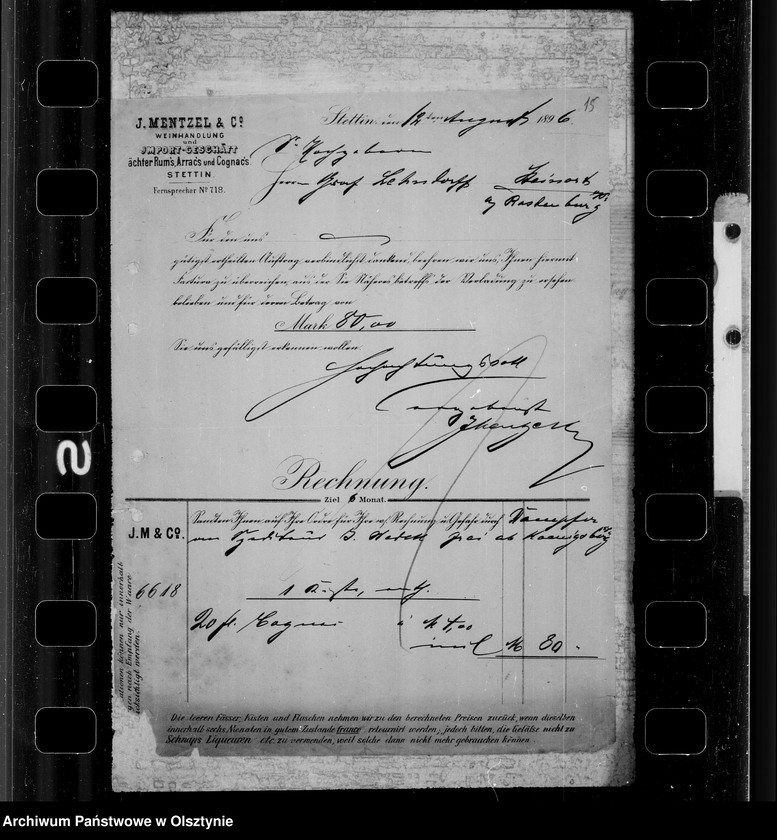 15
Stettin, den 12ten August 1896
J. MENTZEL & Co.
WEINHANDLUNG
und
IMPORT-GESCHÄFT
ächter Rum's, Arrac's und Cognac's.
STETTIN.
Fernsprecher No 718.
Sr. Hochgeboren
Herrn Graf Lehndorff Steinort
Rastenburg
Für den uns
gütigst ertheilten Auftrag verbindlichst dankend, beehren wir uns, Ihnen hiermit
Factura zu überreichen, aus der Sie Näheres betreffs der Verladung zu ersehen
belieben und für deren Betrag von
Mark 80,00
Sie uns gefälligst erkennen wollen.
Hochachtungsvoll
ergebenst
JMentzel
Rechnung.
Ziel 6 Monat.
J.M & Co.
Sandten Ihnen auf Ihre Ordre für Ihre Rechnung u. Gefahr durch Dampfer
Spediteur frei ab Koenigsberg
6618
1 Kiste,
20 fl. Cognac à M 4,00
M 80 -
ationen können nur innerhalb
gen nach Empfang der Waare
ücksichtigt werden.
Die leeren Fässer, Kisten und Flaschen nehmen wir zu den berechneten Preisen zurück, wenn dieselben
innerhalb sechs Monaten in gutem Zustande franco retournirt werden; jedoch bitten, die Gefässe nicht zu
Schnaps Liqueuren etc. zu verwenden, weil solche dann nicht mehr gebrauchen können.
S
Archiwum Państwowe w Olsztynie